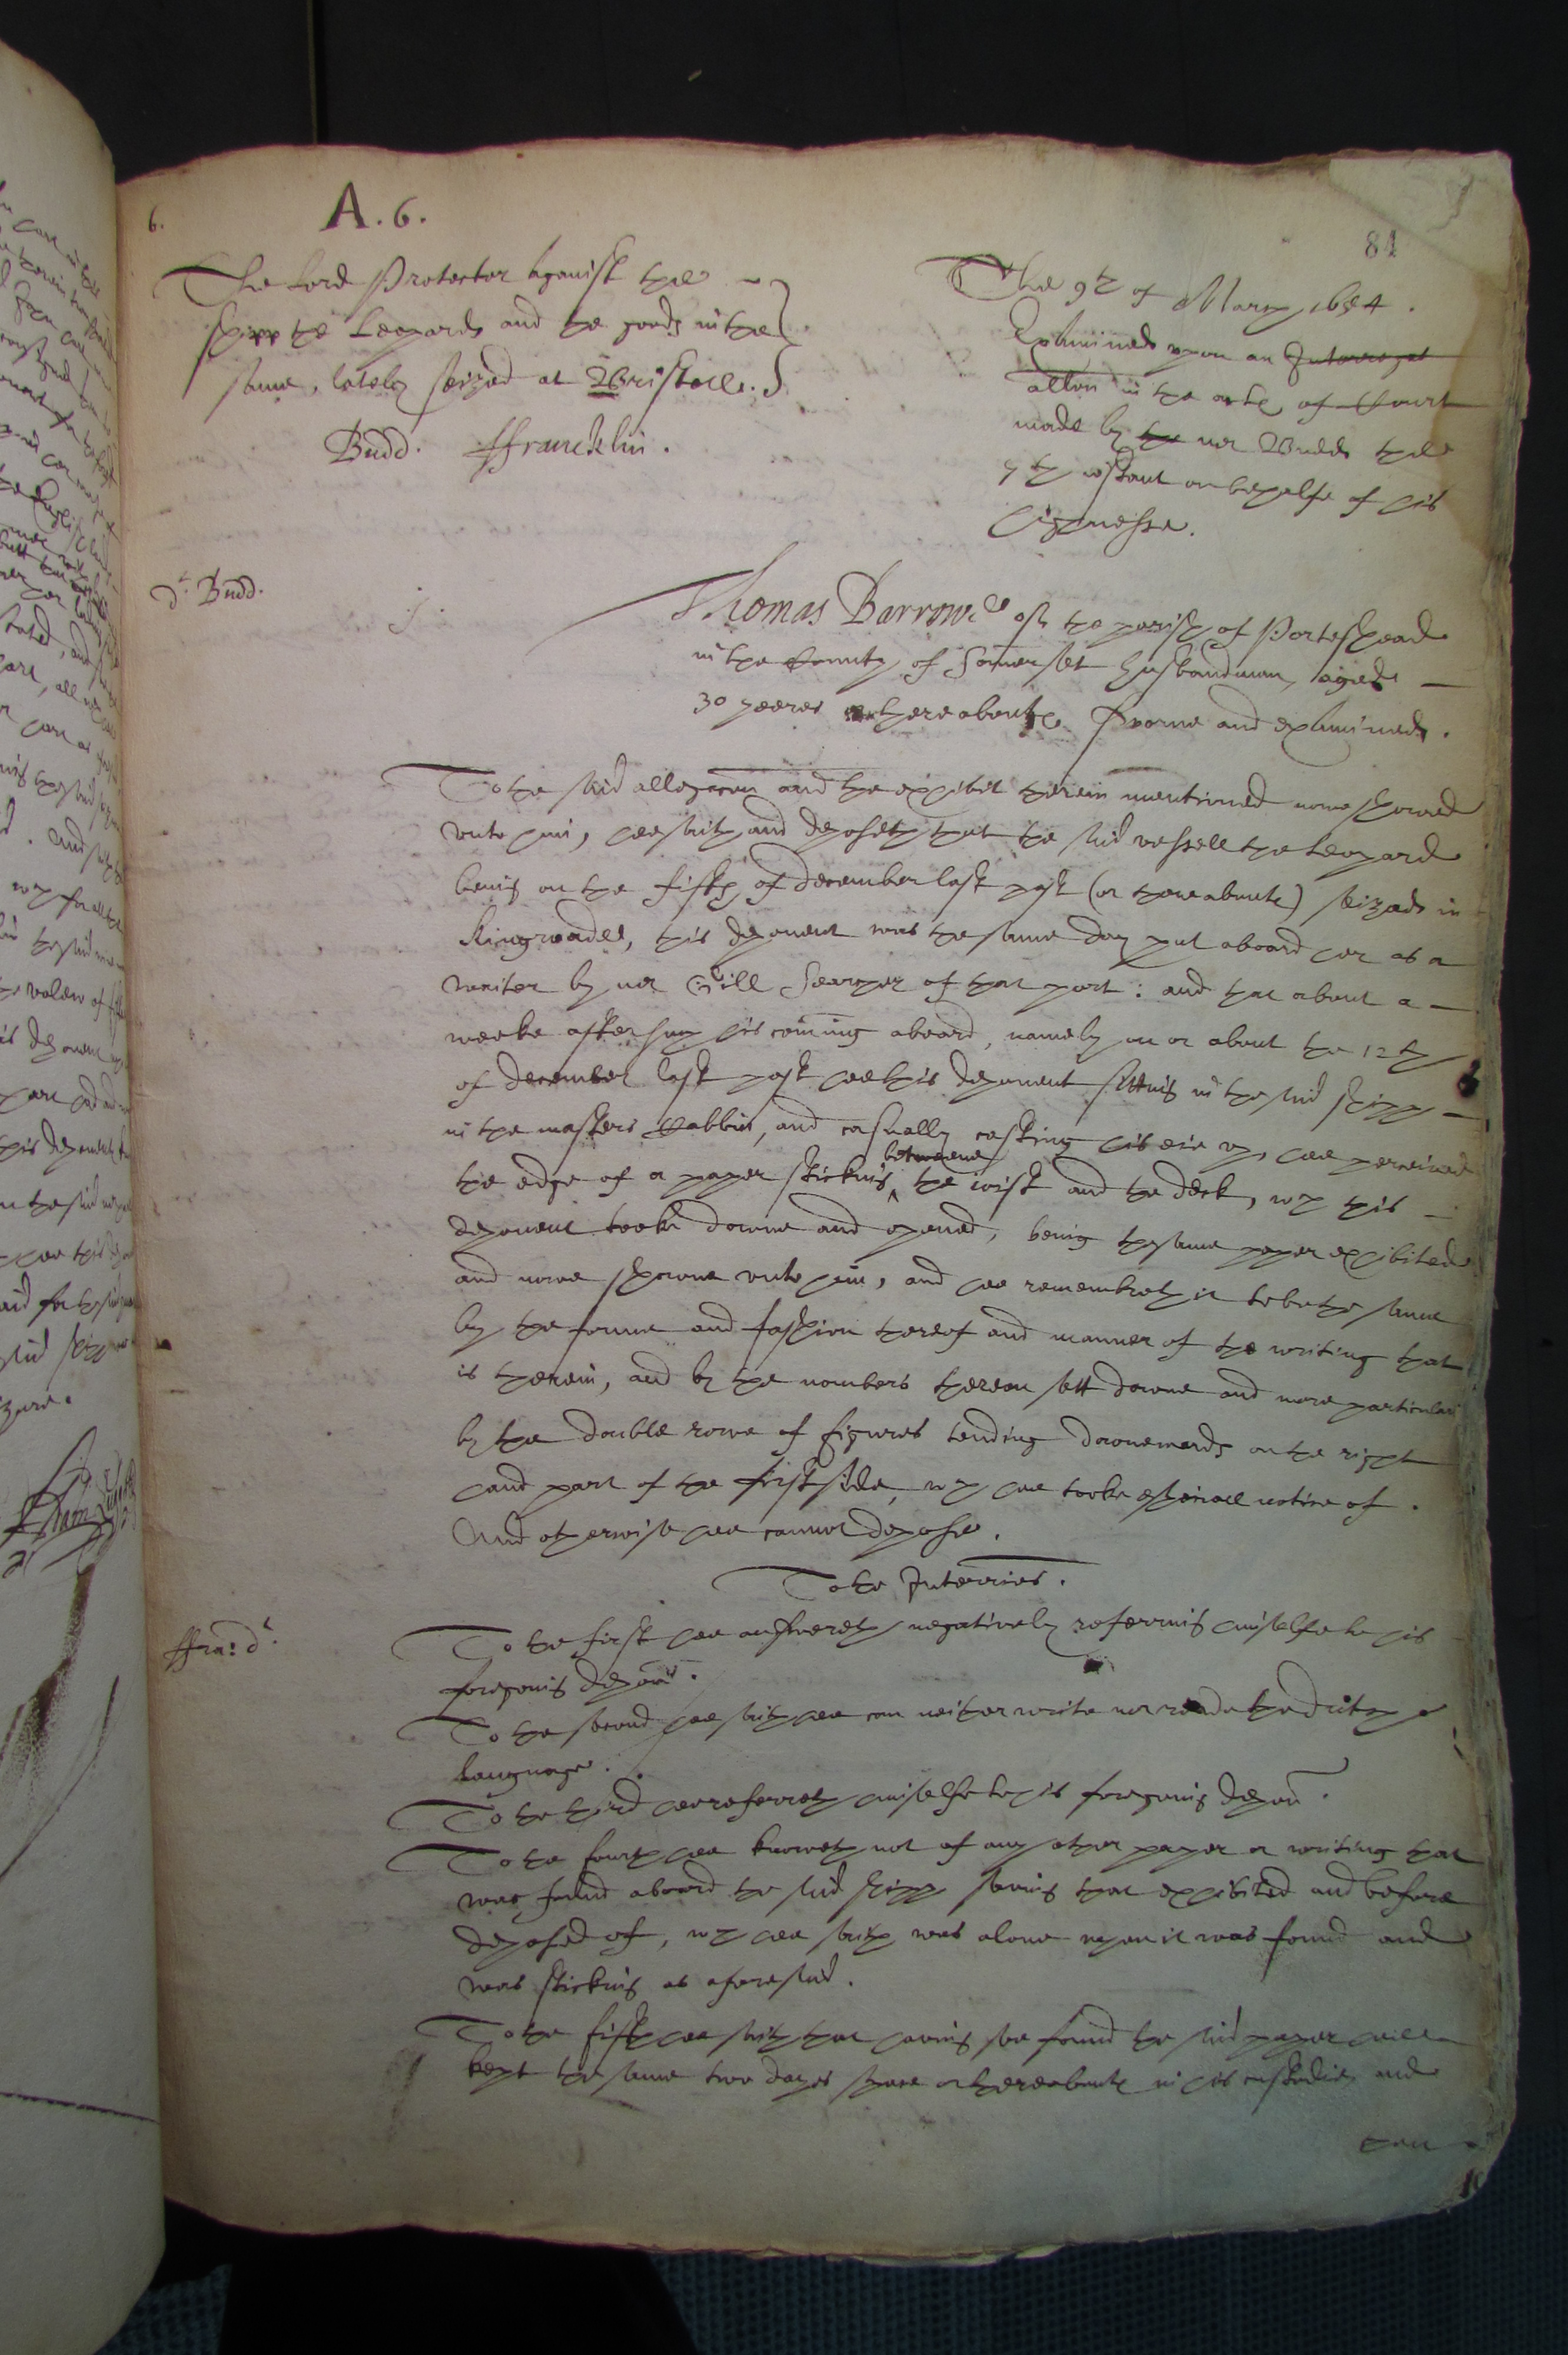 6.
A. 6.
81
The Lord Protector against the
shipp the Leopard and the goods in the
same, lately seized at Bristoll.
Budd. ffrancklin.
The 9th of March 1654.
Examined upon an Interrogat
allon in the acts of Court
made by the mr Budd the
7th instant on behalfe of his
highnesse.
dt. Budd.
j.
Thomas Barrowe of the parish of Porteshead
in the County of Somerset husbandman, aged
30 yeeres or thereabouts sworne and examined.
To the said allegacon and the exhibit therein mentioned nowe showed
unto him, hee saith and deposeth that the said vessell the Leopard
being on the fifth of December last past (or thereabouts) seized in
Kingroade, this deponent was the same day put aboard her as a
waiter by mr Will Searcher of that port: and that about a
weeke after such his coming aboard, namely on or about the 12th
of December last past hee this deponent sitting in the said shipp
in the masters Cabbin, and casually casting his eie up, hee perceived
the edge of a paper sticking betweene the joist and the deck, wch this
deponent tooke downe and opened, being the same paper exhibited
and nowe showne unto him, and hee remembreth it to be the same
by the forme and fashion thereof and manner of the writing that
is therein, and by the nombers thereon sett downe and more particular
by the double rowe of figures tending downewards on the right
hand part of the first side, wch hee tooke especiall notice of.
And otherwise hee cannot depose.
To the Interries.
ffra: dt.
To the first hee answereth negatively referring himselfe to his
foregoing depon.
To the second hee saith hee can neither write nor reade the Dutch
language.
To the third hee referreth himselfe to his foregoing depon.
To the fourth hee knoweth not of any other paper or writing that
was found aboard the said shipp saving that exhibited and before
deposed of, wch hee saith was alone when it was found and
was sticking as aforesaid.
To the fifth hee saith that having soe found the said paper hee
kept the same two dayes space or thereabouts in his custodie, and
then